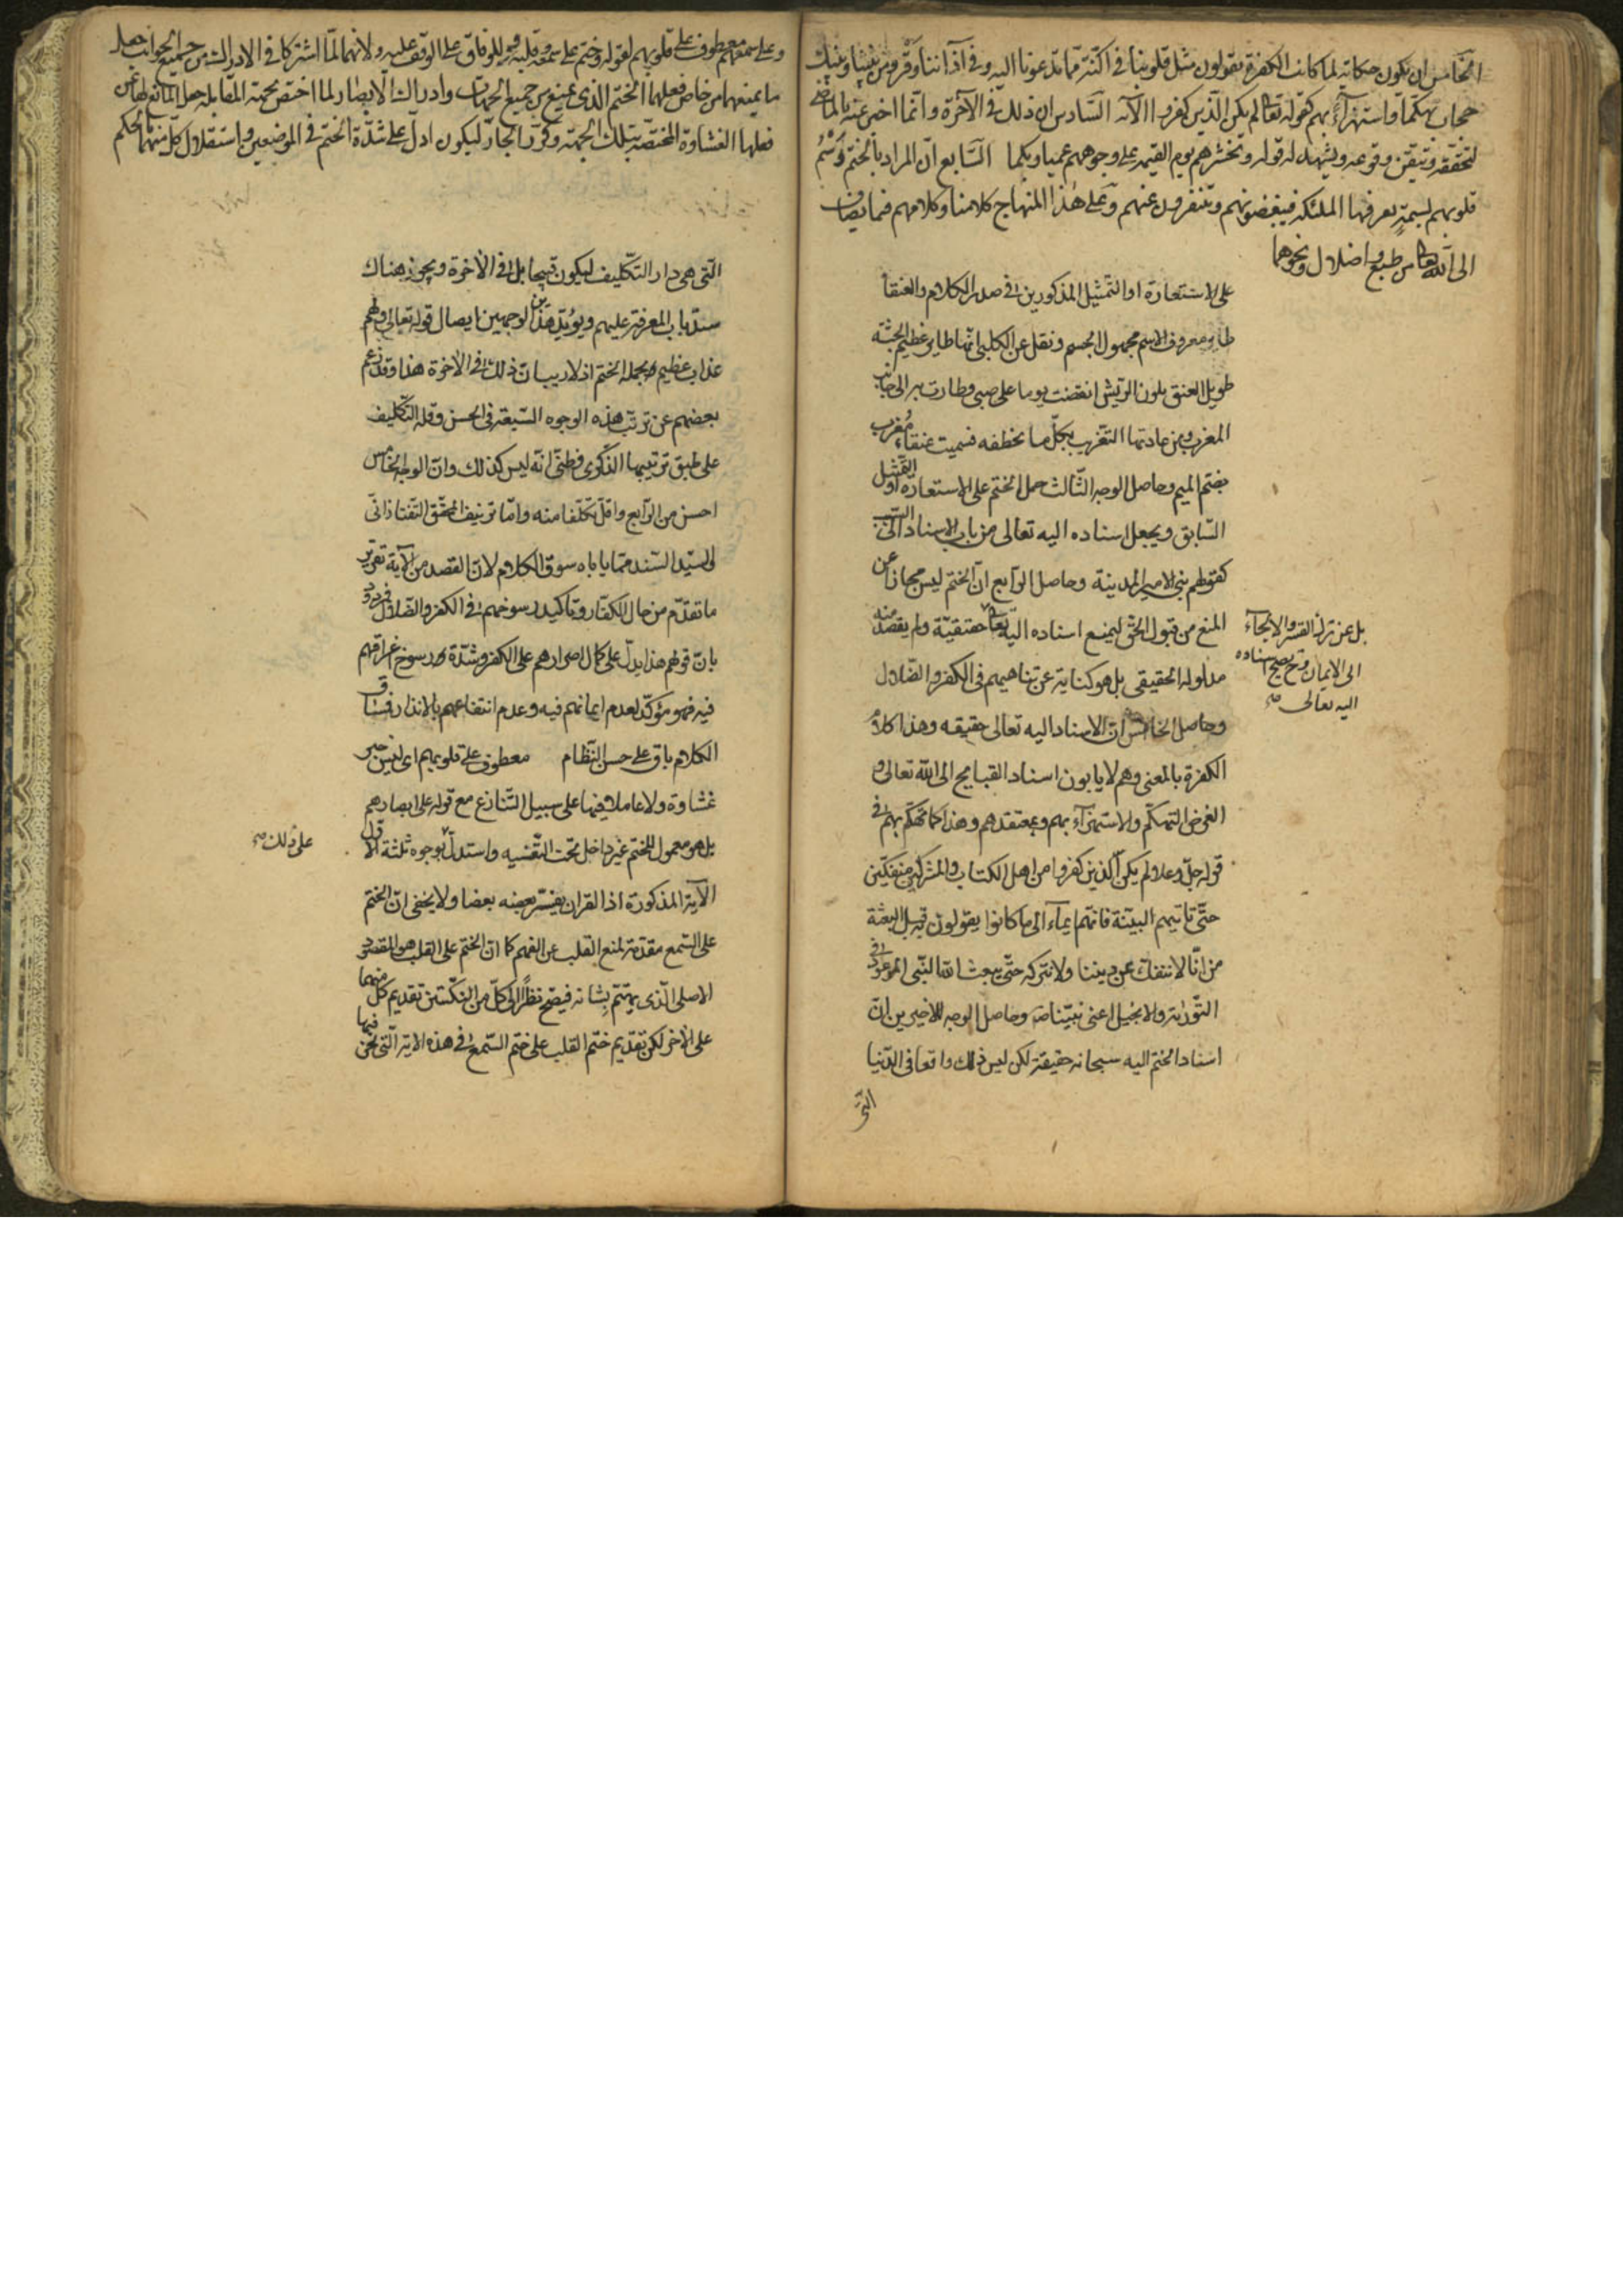 الخامس ان يكون حكاية لما كانت الكفرة يقولون مثل قلوبنا في اكنة مما تدعونا اليه وفي آذاننا وقر ومن بيننا وبينك
حجاب تهكما واستهزآء بهم كقوله تعالى لم يكن الذين كفروا الآية السادس ان ذلك في الآخرة وانما اخبر عنه بالماضي
لتحققه وتيقن وقوعه ويشهد له قوله ونحشرهم يوم القيمة على وجوههم عميا وبكما السابع ان المراد بالختم وسم
قلوبهم بسمة تعرفها الملئكة فيبغضونهم ويتنفرون عنهم وعلى هذا المنهاج كلامنا وكلامهم فيما يضاف
الى الله تعالى من طبع واضلال ونحوهما
على الاستعارة او التمثيل المذكورين في صدر الكلام والعنقا
طاير معروف الاسم مجهول الجسم ونقل عن الكلبي انها طاير عظيم الجثة
طويل العنق ملون الريش انقضت يوما على صبي وطارت به الى جانب
المغرب ومن عادتها التغريب بكل ما تخطفه فسميت عنقاء مغرب
بضم الميم وحاصل الوجه الثالث حمل الختم على الاستعارة او التمثيل
السابق ويجعل اسناده اليه تعالى من باب الاسناد الى السبب
كقولهم بنى الامير المدينة وحاصل الرابع ان الختم ليس مجازا عن
المنع من قبول الحق ليمنع اسناده اليه تعالى حقيقية ولم يقصد منه
مدلوله الحقيقي بل هو كناية عن تناهيهم في الكفر والضلال
بل عن ترك القسر والالجآء
الى الايمان وح يصح اسناده
اليه تعالى صح
وحاصل الخامس ان الاسناد اليه تعالى حقيقه وهذا كلام
الكفرة بالمعنى وهم لا يابون اسناد القبايح الى الله تعالى و
الغرض التهكم والاستهزآء بهم وبمعتقدهم وهذا كما تهكم بهم في
قوله جل وعلا لم يكن الذين كفروا من اهل الكتاب والمشركين منفكين
حتى تاتيهم البينة فانهم ايمآء الى ما كانوا يقولون قبل البعثة
من انا لا ننفك عن ديننا ولا نتركه حتى يبعث الله النبي الموعود في
التورية والانجيل اعني نبينا ص وحاصل الوجه الاخيرين ان
اسناد الختم اليه سبحانه حقيقة لكن ليس ذلك واقعا في الدنيا
التى
وعلى سمعهم معطوف على قلوبهم لقوله وختم على سمعه وقلبه وللوفاق على الوقف عليه ولانهما لما اشتركا في الادراك من جميع الجوانب جعل
ما يمنعهما من خاص فعلهما الختم الذي يمنع من جميع الجهات وادراك الابصار لما اختص بجهة المقابلة جعل المانع لها عن
فعلها الغشاوة المختصة بتلك الجهة وكرر الجار ليكون ادل على شدة الختم في الموضعين واستقلال كل منهما بالحكم
التى هى دار التكليف ليكون قبيحا بل في الآخرة ويجوز هناك
سد باب المعرفة عليهم ويؤيد هذين الوجهين ايصال قوله تعالى ولهم
عذاب عظيم بجملة الختم اذ لا ريب ان ذلك في الآخرة هذا وقد زعم
بعضهم عن ترتب هذه الوجوه السبعة في الحسن وقلة التكليف
على طبق ترتيبها الذكرى وظنى انه ليس كذلك وان الوجه الخامس
احسن من الرابع واقل تكلفا منه واما تزييف المحقق التفتازانى
والسيد السند مما ياباه سوق الكلام لان القصد من الآية تقرير
ما تقدم من حال الكفار وتاكيد رسوخهم في الكفر والضلال فمردود
بان قولهم هذا يدل على كمال اصرارهم على الكفر وشدة رسوخ اعراقهم
فيه فهو مؤكد لعدم ايمانهم فيه وعدم انتفاعهم بالانذار فسياق
الكلام باق على حسن النظام معطوف على قلوبهم اى ليس خبر
غشاوة ولا عاملا فيها على سبيل التنازع مع قوله على ابصارهم
بل هو معمول للختم غير داخل تحت التغشيه واستدل بوجوه ثلثة الاول
على ذلك صح
الآية المذكورة اذ القران يفسر بعضه بعضا ولا يخفى ان الختم
على السمع مقدمة لمنع القلب عن الفهم كما ان الختم على القلب هو المقصود
الاصلى الذى يهتم بشانه فيصح نظرا الى كل من النكتتين تقديم كل منهما
على الآخر لكن تقديم ختم القلب على ختم السمع في هذه الآية التى نحن فيها